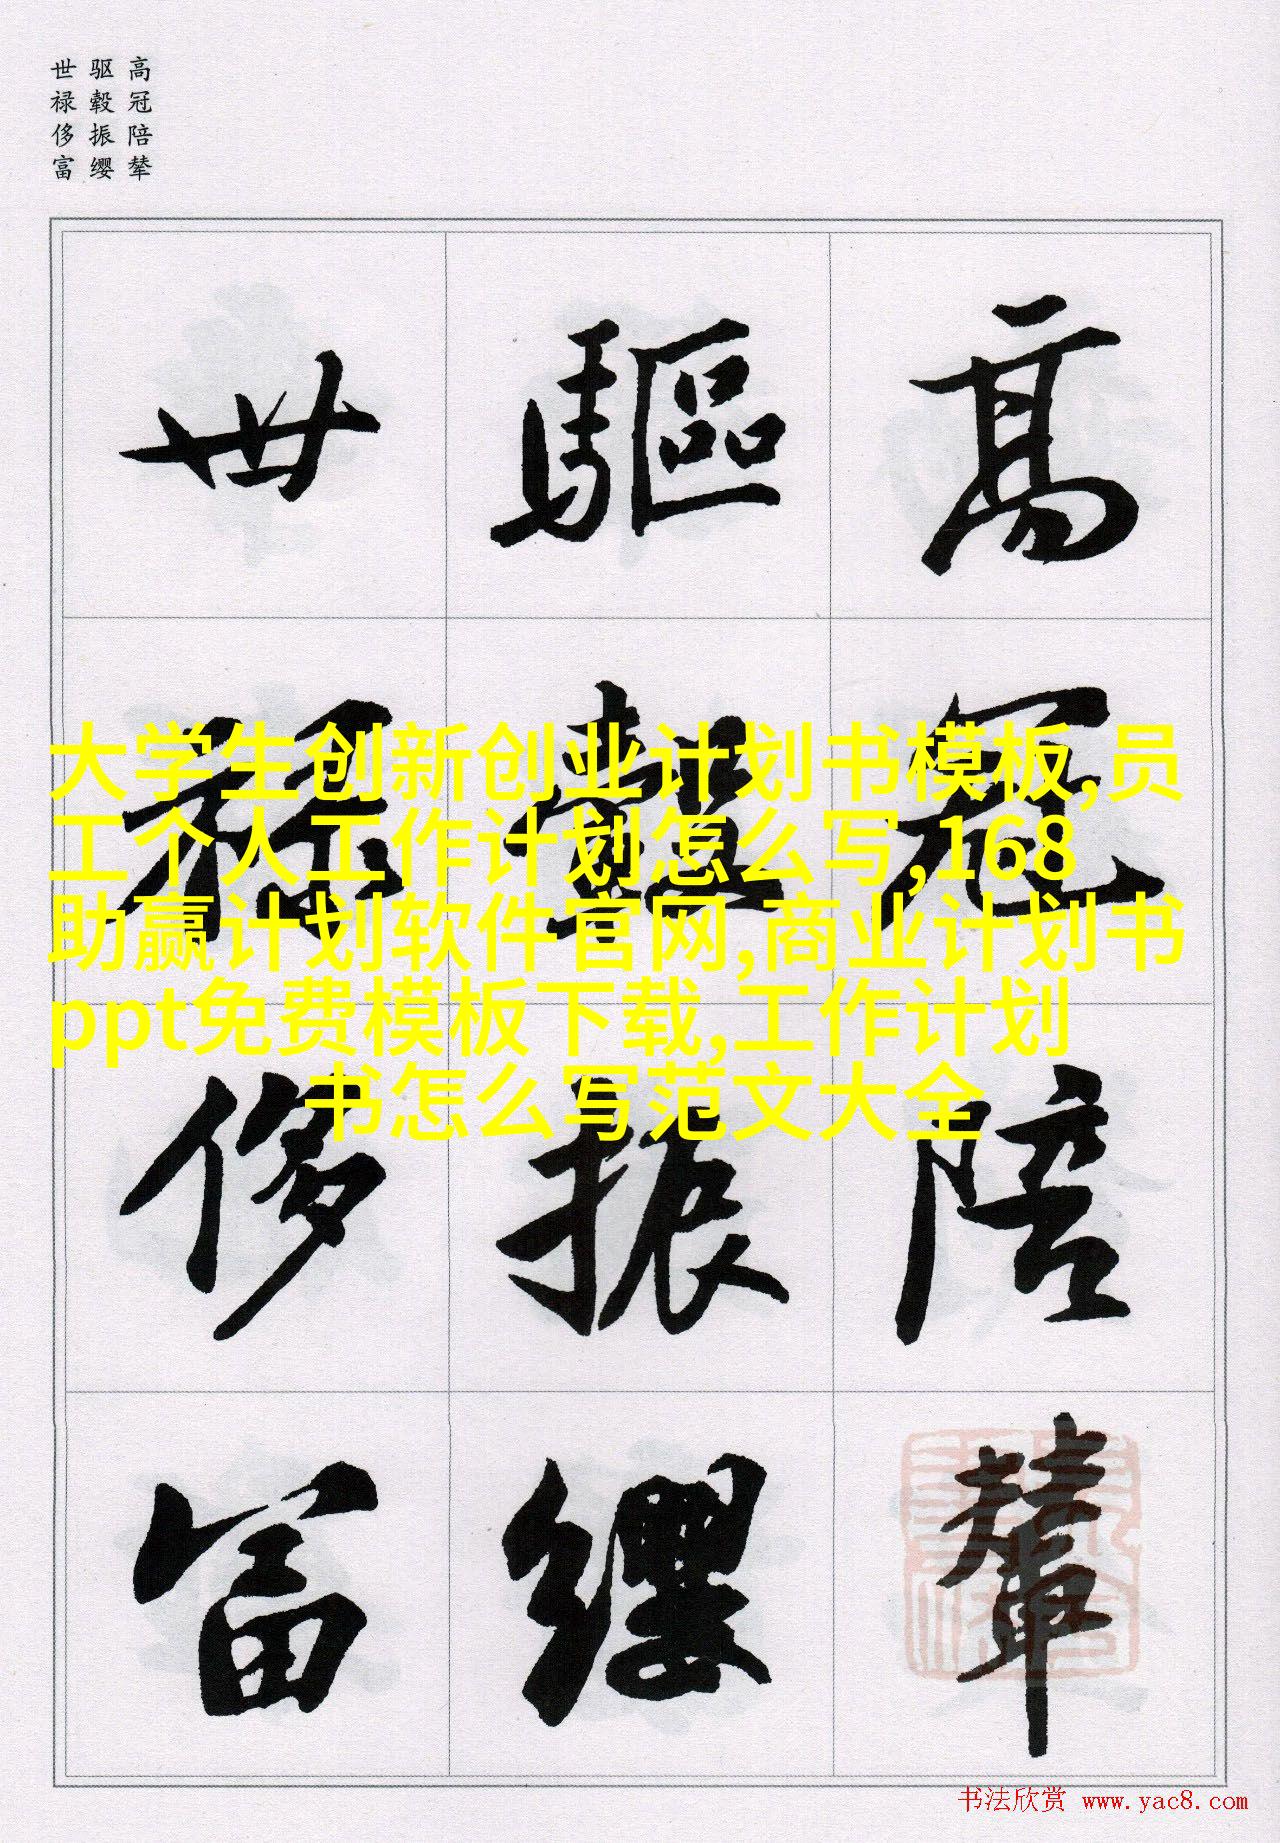 高冠陪辇
驱毂振缨
世禄侈富
高冠陪輦
驅轂振纓
世祿侈富
大学生创新创业计划书模板,员
工个人工作计划怎么写,168
助赢计划软件官网,商业计划书
ppt免费模板下载,工作计划
书怎么写范文大全
书法欣赏 www.yac8.com